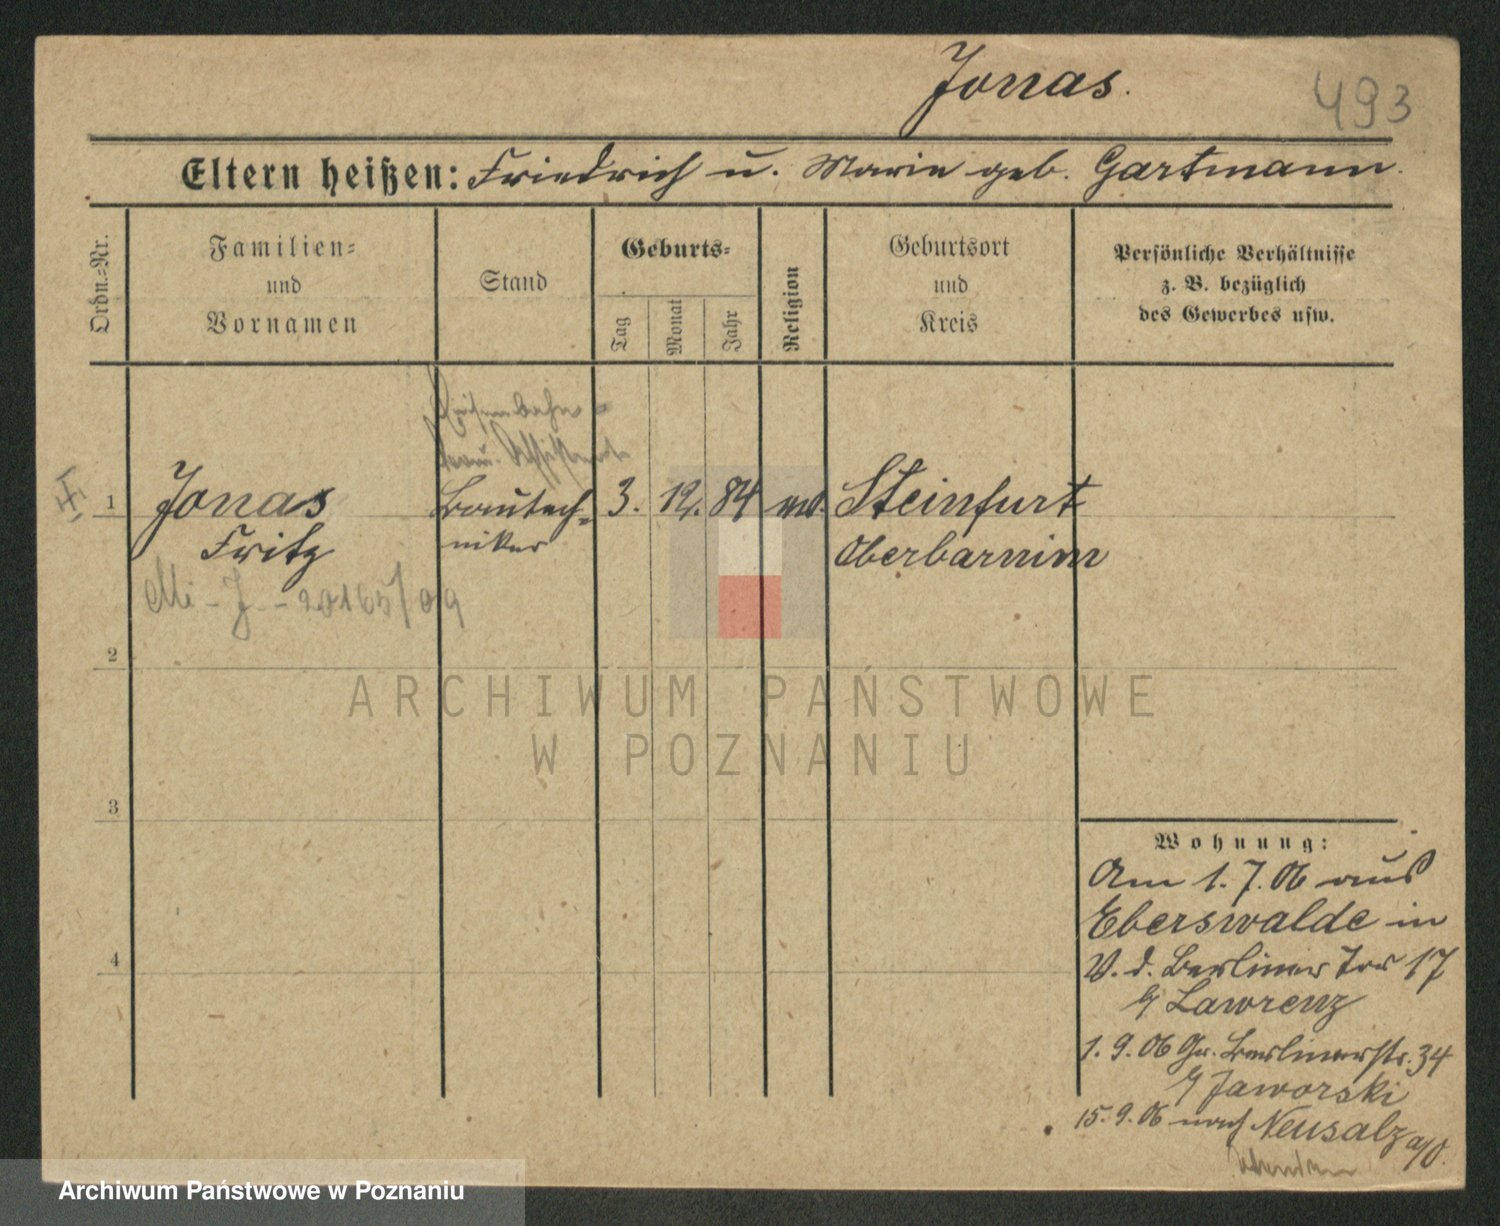 Jonas.
493
Eltern heißen: Friedrich u. Marie geb. Gartmann.
Ordn.=Nr.
Familien=
und
Vornamen
Stand
Geburts=
Tag
Monat
Jahr
Religion
Geburtsort
und
Kreis
Persönliche Verhältnisse
z. B. bezüglich
des Gewerbes usw.
Eisenbahn=
1
Jonas
Fritz
Bautech=
niker
3. 12. 84
Steinfurt
Oberbarnim
Mi-J-20165/09
2
3
4
Wohnung:
Am 1.7.06 aus
Eberswalde in
V. d. Berliner Tor 17
b/ Lawrenz
1.9.06 Gr. Berlinerstr. 34
b/ Jaworski
15.9.06 nach Neusalz a/O.
ARCHIWUM PAŃSTWOWE
W POZNANIU
Archiwum Państwowe w Poznaniu